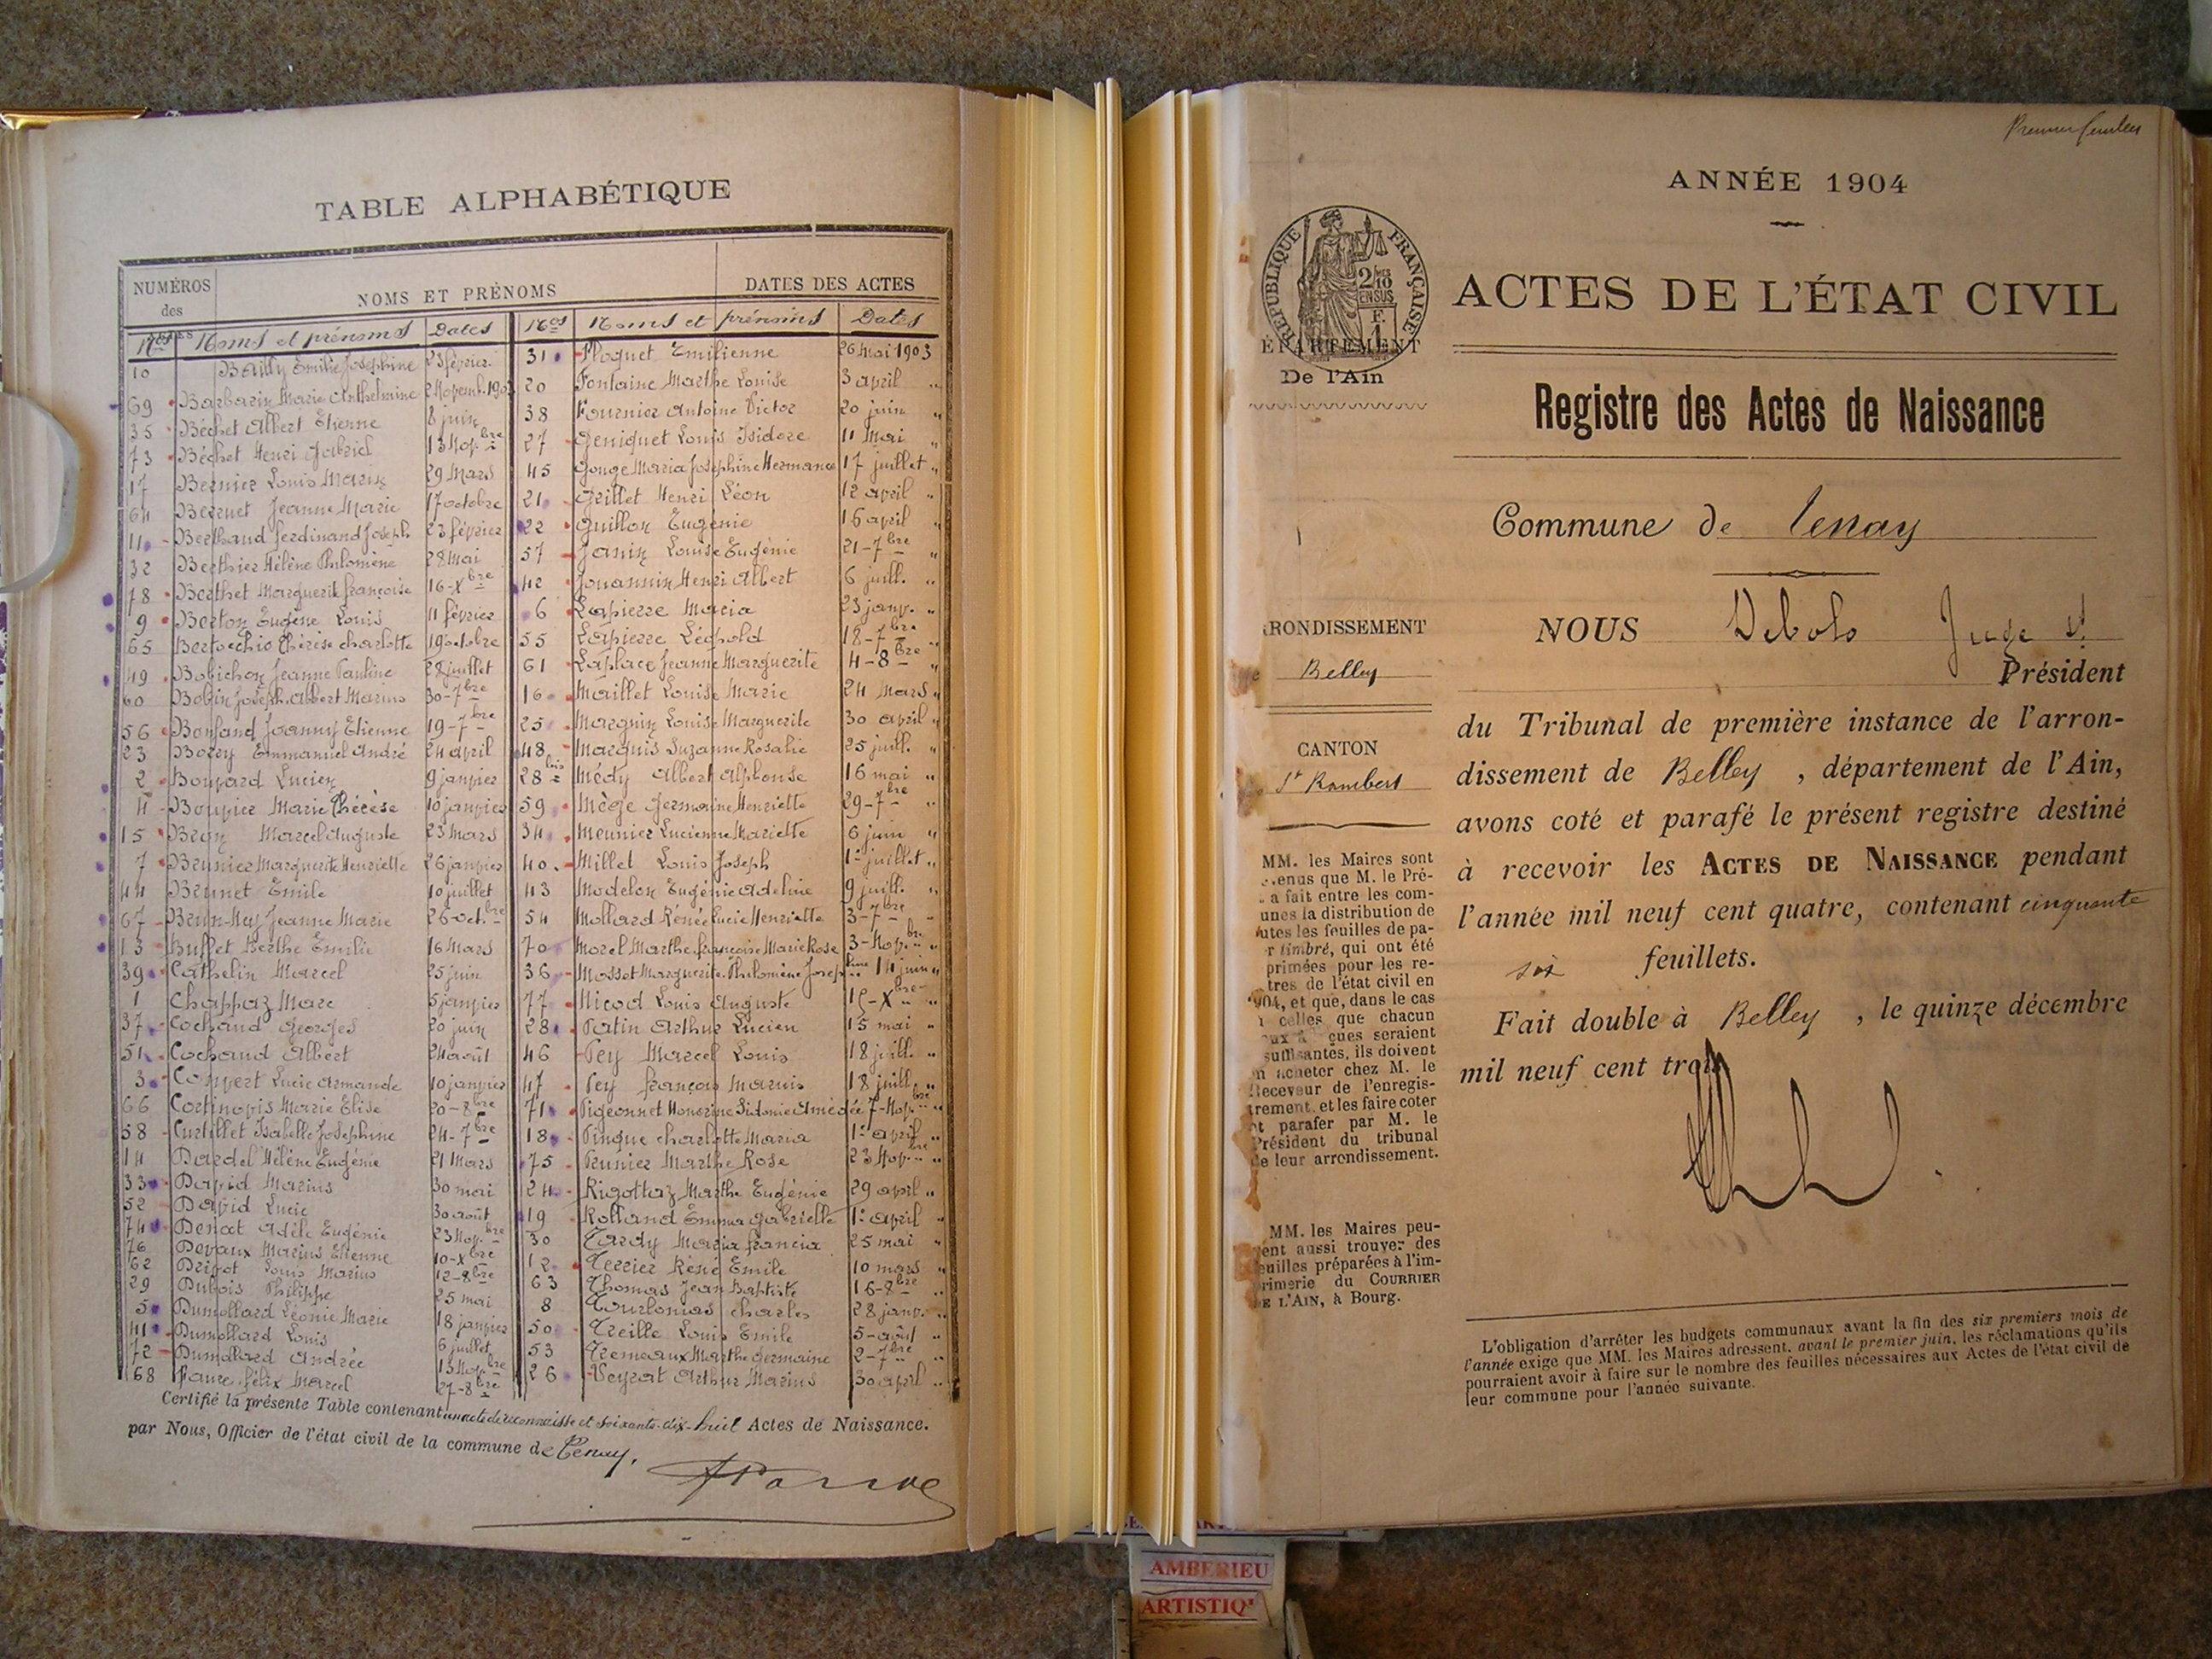 TABLE ALPHABÉTIQUE
NUMÉROS
des
NOMS ET PRÉNOMS
DATES DES ACTES
Nos Noms et prénoms Dates
10 Bailly Emilie Joséphine 23 février
69 Barbarin Marie Anthelmine 2 Novemb. 1903
35 Béchet Albert Etienne 8 juin
73 Béchet Henri Gabriel 13 Nov.bre
17 Bernier Louis Marin 29 Mars
64 Bernet Jeanne Marie 17 octobre
11 Berthaud Ferdinand Joseph 23 février
32 Berthier Hélène Philomène 28 Mai
78 Berthet Marguerite Françoise 16-Xbre
9 Berton Eugène Louis 11 février
65 Bertocchio Thérèse Charlotte 19 octobre
49 Bobichon Jeanne Pauline 28 juillet
60 Bobin Joseph Albert Marius 30-7bre
56 Bonfand Joanny Etienne 19-7bre
23 Borey Emmanuel André 24 april
2 Boyard Lucien 9 janvier
4 Bouvier Marie Thérèse 10 janvier
15 Bron Marcel Auguste 23 Mars
7 Brunier Marguerite Henriette 26 janvier
44 Brunet Emile 10 juillet
67 Brun-Ney Jeanne Marie 26 oct.bre
13 Buffet Berthe Emilie 16 Mars
39 Cathelin Marcel 25 juin
1 Chappaz Marc 5 janvier
37 Cochand Georges 20 juin
51 Cochand Albert 24 août
3 Convert Lucie Armande 10 janvier
66 Cortinovis Marie Elise 20-8bre
58 Curtillet Isabelle Joséphine 24-7bre
14 Dardel Hélène Eugénie 21 Mars
33 David Marius 30 mai
52 David Lucie 30 août
74 Denat Adèle Eugénie 23 Nov.bre
76 Devaux Marius Etienne 10-Xbre
62 Drivot Louis Marius 12-8bre
29 Dubois Philippe 25 mai
5 Dumollard Léonie Marie 18 janvier
41 Dumollard Louis 6 juillet
72 Dumollard Andrée 13 Nov.bre
68 Faure Félix Marcel 27-8bre
Nos Noms et prénoms Dates
31 Floquet Emilienne 26 Mai 1903
20 Fontaine Marthe Louise 3 april "
38 Fournier Antoine Victor 20 juin "
27 Geniquet Louis Isidore 11 Mai "
45 Gouge Maria Joséphine Hermance 17 juillet "
21 Grillet Henri Léon 12 april "
22 Guillon Eugénie 16 april "
57 Janin Louise Eugénie 21-7bre "
42 Jouannin Henri Albert 6 juill. "
6 Lapierre Maria 23 janv. "
55 Lapierre Léopold 18-7bre "
61 Laplace Jeanne Marguerite 4-8bre "
16 Maillet Louise Marie 24 Mars "
25 Margnin Louise Marguerite 30 april "
48 Marquis Suzanne Rosalie 25 juill. "
28 bis Médy Albert Alphonse 16 mai "
59 Mège Germaine Henriette 29-7bre "
34 Meunier Lucienne Mariette 6 juin "
40 Millet Louis Joseph 1er juillet "
43 Modelon Eugénie Adeline 9 juill. "
54 Mollard Rénée Lucie Henriette 3-7bre "
70 Morel Marthe Françoise Marie Rose 3-Nov.bre "
36 Mosset Marguerite Philomène Joséphine 14 juin "
77 Nicod Louis Auguste 15-Xbre "
28 Patin Arthur Lucien 15 mai "
46 Pey Marcel Louis 18 juill. "
47 Pey François Marius 18 juill. "
71 Pigeonnet Honorine Sidonie Amédée 7-Nov.bre "
18 Pinque Charlotte Maria 1er april "
75 Prunier Marthe Rose 23 Nov.bre "
24 Rigottaz Marthe Eugénie 29 april "
19 Rolland Emma Gabrielle 1er april "
30 Tardy Maria Francia 25 mai "
12 Terrier Réné Emile 10 mars "
63 Thomas Jean Baptiste 16-8bre "
8 Tourlonias Charles 28 janv. "
50 Treille Louis Emile 5-août "
53 Tremeaux Marthe Germaine 2-7bre "
26 Veyrat Arthur Marius 30 april "
Certifié la présente Table contenant un acte de reconnaisse et soixante-dix-huit Actes de Naissance.
par Nous, Officier de l'état civil de la commune de Tenay.
Premier feuillet
ANNÉE 1904
RÉPUBLIQUE FRANÇAISE
2/10
EN SUS
F.
1
ÉPARTEMENT
De l'Ain
ACTES DE L'ÉTAT CIVIL
Registre des Actes de Naissance
Commune de Tenay
RONDISSEMENT
Belley
CANTON
St Rambert
NOUS Debolo Juge st
Président
du Tribunal de première instance de l'arron-
dissement de Belley , département de l'Ain,
avons coté et parafé le présent registre destiné
à recevoir les ACTES DE NAISSANCE pendant
l'année mil neuf cent quatre, contenant cinquante
six feuillets.
Fait double à Belley , le quinze décembre
mil neuf cent trois
MM. les Maires sont
enus que M. le Pré-
a fait entre les com-
unes la distribution de
utes les feuilles de pa-
r timbré, qui ont été
primées pour les re-
tres de l'état civil en
904, et que, dans le cas
celles que chacun
çues seraient
suffisantes, ils doivent
n acheter chez M. le
Receveur de l'enregis-
trement, et les faire coter
et parafer par M. le
Président du tribunal
de leur arrondissement.
MM. les Maires peu-
vent aussi trouver des
feuilles préparées à l'im-
primerie du COURRIER
DE L'AIN, à Bourg.
L'obligation d'arrêter les budgets communaux avant la fin des six premiers mois de
l'année exige que MM. les Maires adressent, avant le premier juin, les réclamations qu'ils
pourraient avoir à faire sur le nombre des feuilles nécessaires aux Actes de l'état civil de
leur commune pour l'année suivante.
AMBERIEU
ARTISTIQ